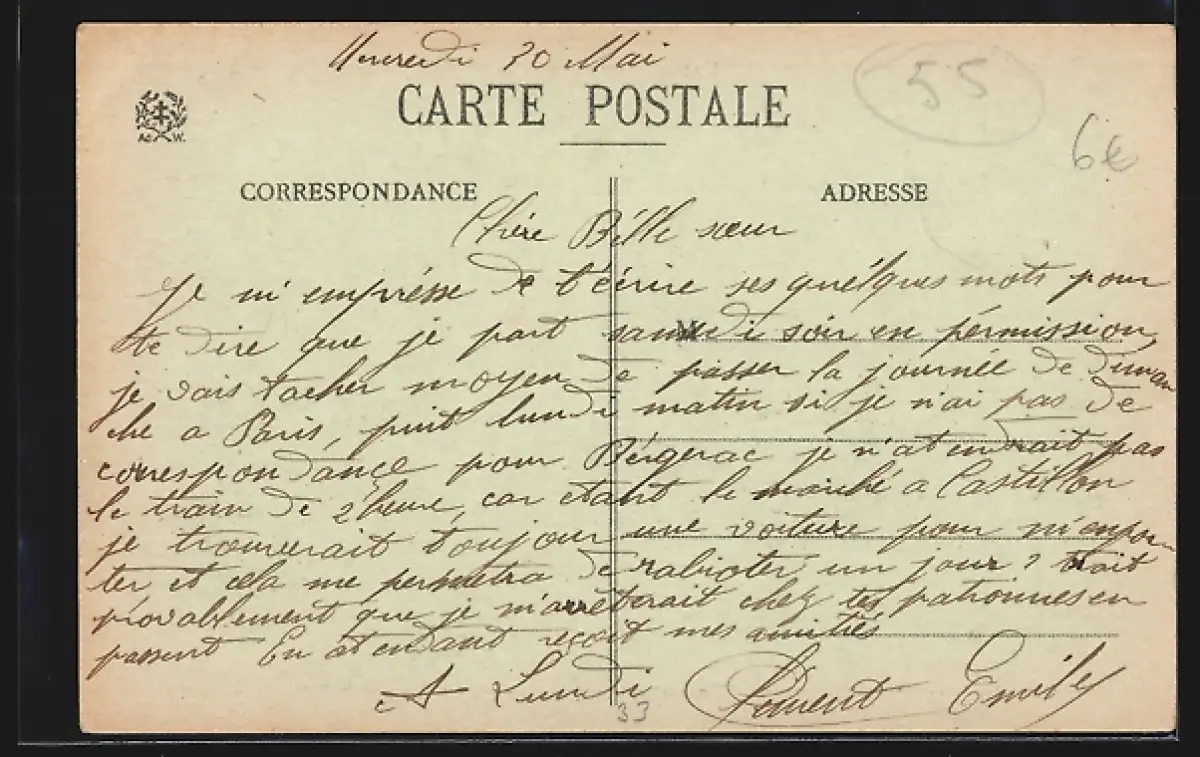 Vencredi 30 Mai
55
CARTE POSTALE
6€
CORRESPONDANCE
ADRESSE
Chère Bélle sœur
Je m'emprésse de t'écrire ses quélques mots pour
te dire que je part samedi soir en pérmission,
je vais tacher moyen de passer la journée de diman
che a Paris, puit lundi matin si je n'ai pas de
correspondance pour Bérgerac je n'atendrait pas
le train de 2 heure, car étant le marché a Castillon
je trouverait toujour une voiture pour m'empor
ter et cela me permetra de rabioter un jour ?
provablement que je m'arrèterait chez tes patronnes en
passent En atendant reçoit mes amitiés
A Lundi
Emile
33